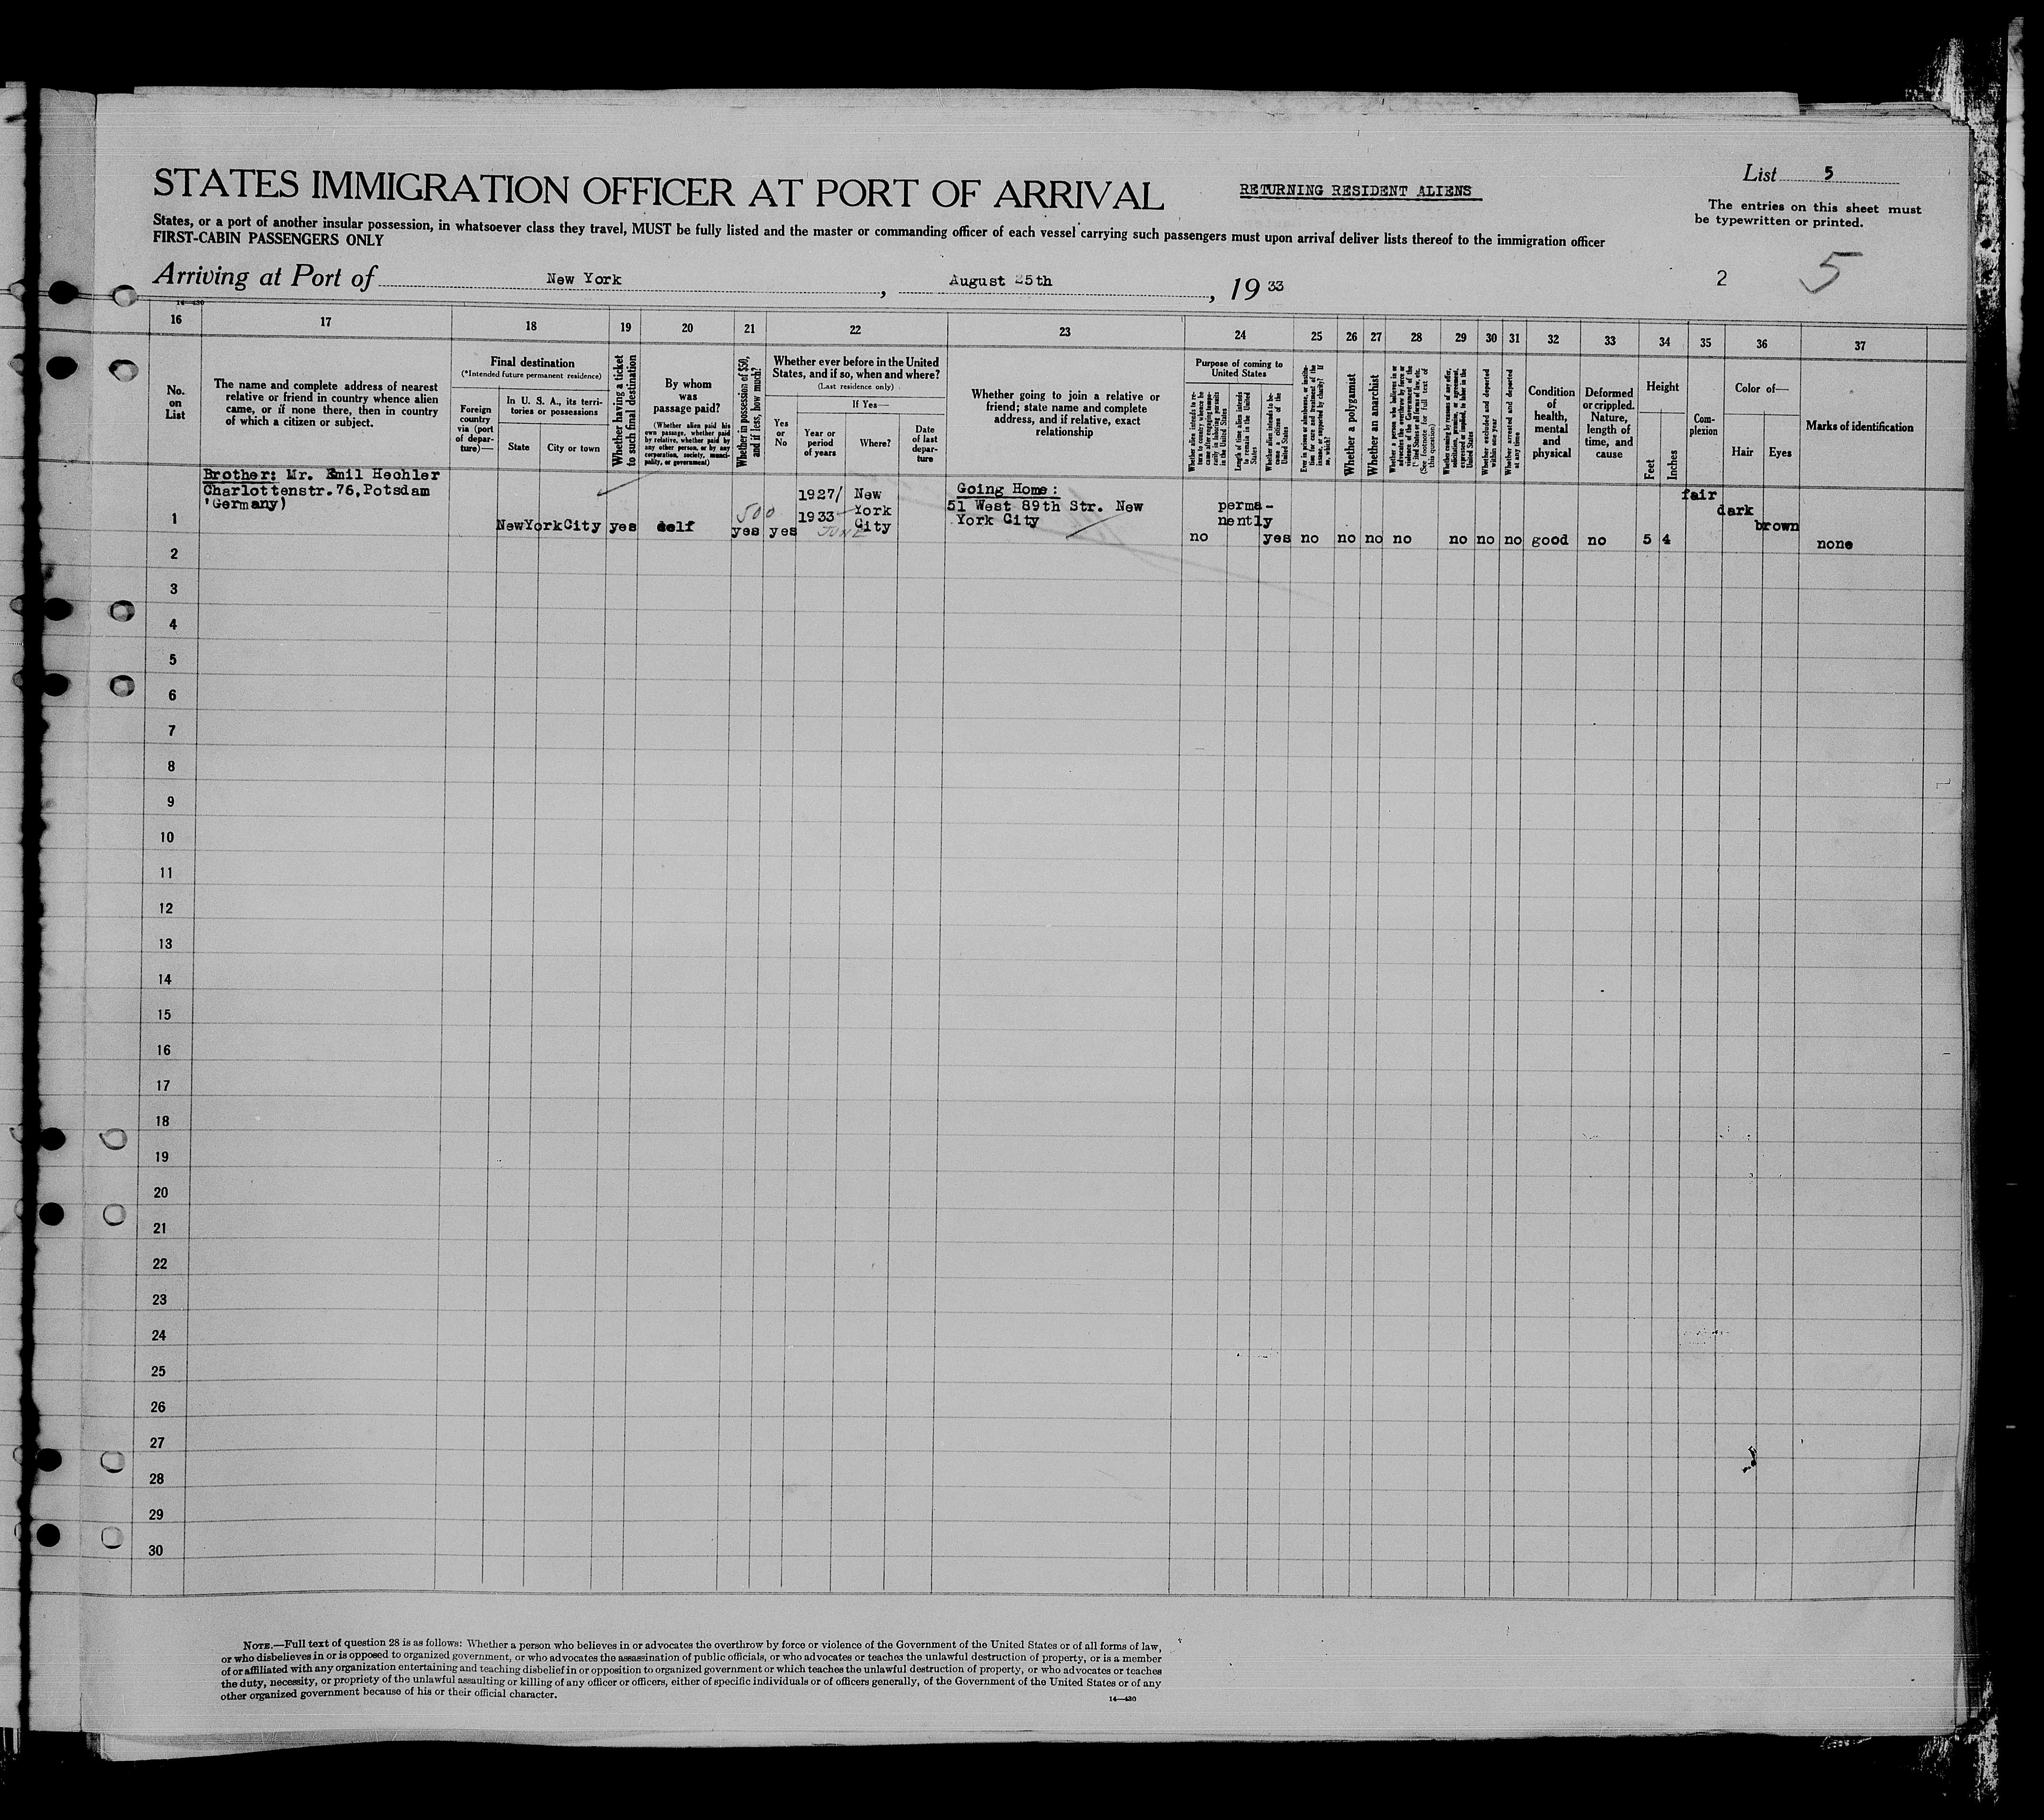 STATES IMMIGRATION OFFICER AT PORT OF ARRIVAL
RETURNING RESIDENT ALIENS
List 5
The entries on this sheet must
be typewritten or printed.
States, or a port of another insular possession, in whatsoever class they travel, MUST be fully listed and the master or commanding officer of each vessel carrying such passengers must upon arrival deliver lists thereof to the immigration officer
FIRST-CABIN PASSENGERS ONLY
Arriving at Port of New York, August 25th, 19 33
2
5
14—430
16 17 18 19 20 21 22 23 24 25 26 27 28 29 30 31 32 33 34 35 36 37
No.
on
List
The name and complete address of nearest
relative or friend in country whence alien
came, or if none there, then in country
of which a citizen or subject.
Final destination
(*Intended future permanent residence)
Foreign
country
via (port
of depar-
ture)—
In U. S. A., its terri-
tories or possessions
State
City or town
Whether having a ticket
to such final destination
By whom
was
passage paid?
(Whether alien paid his
own passage, whether paid
by relative, whether paid by
any other person, or by any
corporation, society, munici-
pality, or government)
Whether in possession of $50,
and if less, how much?
Whether ever before in the United
States, and if so, when and where?
(Last residence only)
Yes
or
No
If Yes—
Year or
period
of years
Where?
Date
of last
depar-
ture
Whether going to join a relative or
friend; state name and complete
address, and if relative, exact
relationship
Purpose of coming to
United States
Whether alien intends to re-
turn to country whence he
came after engaging tempo-
rarily in laboring pursuits
in the United States
Length of time alien intends
to remain in the United
States
Whether alien intends to be-
come a citizen of the
United States
Ever in prison or almshouse, or institu-
tion for care and treatment of the
insane, or supported by charity? If
so, which?
Whether a polygamist
Whether an anarchist
Whether a person who believes in or
advocates the overthrow by force or
violence of the Government of the
United States or all forms of law, etc.
(See footnote for full text of
this question)
Whether coming by reasons of any offer,
solicitation, promise, or agreement,
expressed or implied, to labor in the
United States
Whether excluded and deported
within one year
Whether arrested and deported
at any time
Condition
of
health,
mental
and
physical
Deformed
or crippled.
Nature,
length of
time, and
cause
Height
Feet
Inches
Com-
plexion
Color of—
Hair
Eyes
Marks of identification
Brother: Mr. Emil Hechler
Charlottenstr. 76, Potsdam
'Germany)
1
NewYorkCity
yes
self
500
yes
yes
1927/
1933
JUNE
New
York
City
Going Home:
51 West 89th Str. New
York City
no
perma-
nently
yes
no
no
no
no
no
no
no
good
no
5
4
fair
dark
brown
none
2
3
4
5
6
7
8
9
10
11
12
13
14
15
16
17
18
19
20
21
22
23
24
25
26
27
28
29
30
NOTE.—Full text of question 28 is as follows: Whether a person who believes in or advocates the overthrow by force or violence of the Government of the United States or of all forms of law,
or who disbelieves in or is opposed to organized government, or who advocates the assassination of public officials, or who advocates or teaches the unlawful destruction of property, or is a member
of or affiliated with any organization entertaining and teaching disbelief in or opposition to organized government or which teaches the unlawful destruction of property, or who advocates or teaches
the duty, necessity, or propriety of the unlawful assaulting or killing of any officer or officers, either of specific individuals or of officers generally, of the Government of the United States or of any
other organized government because of his or their official character.
14—430